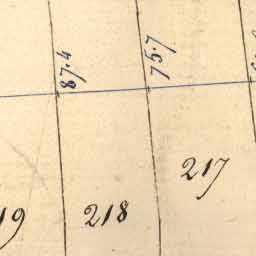 87.4
75.7
217
218
19